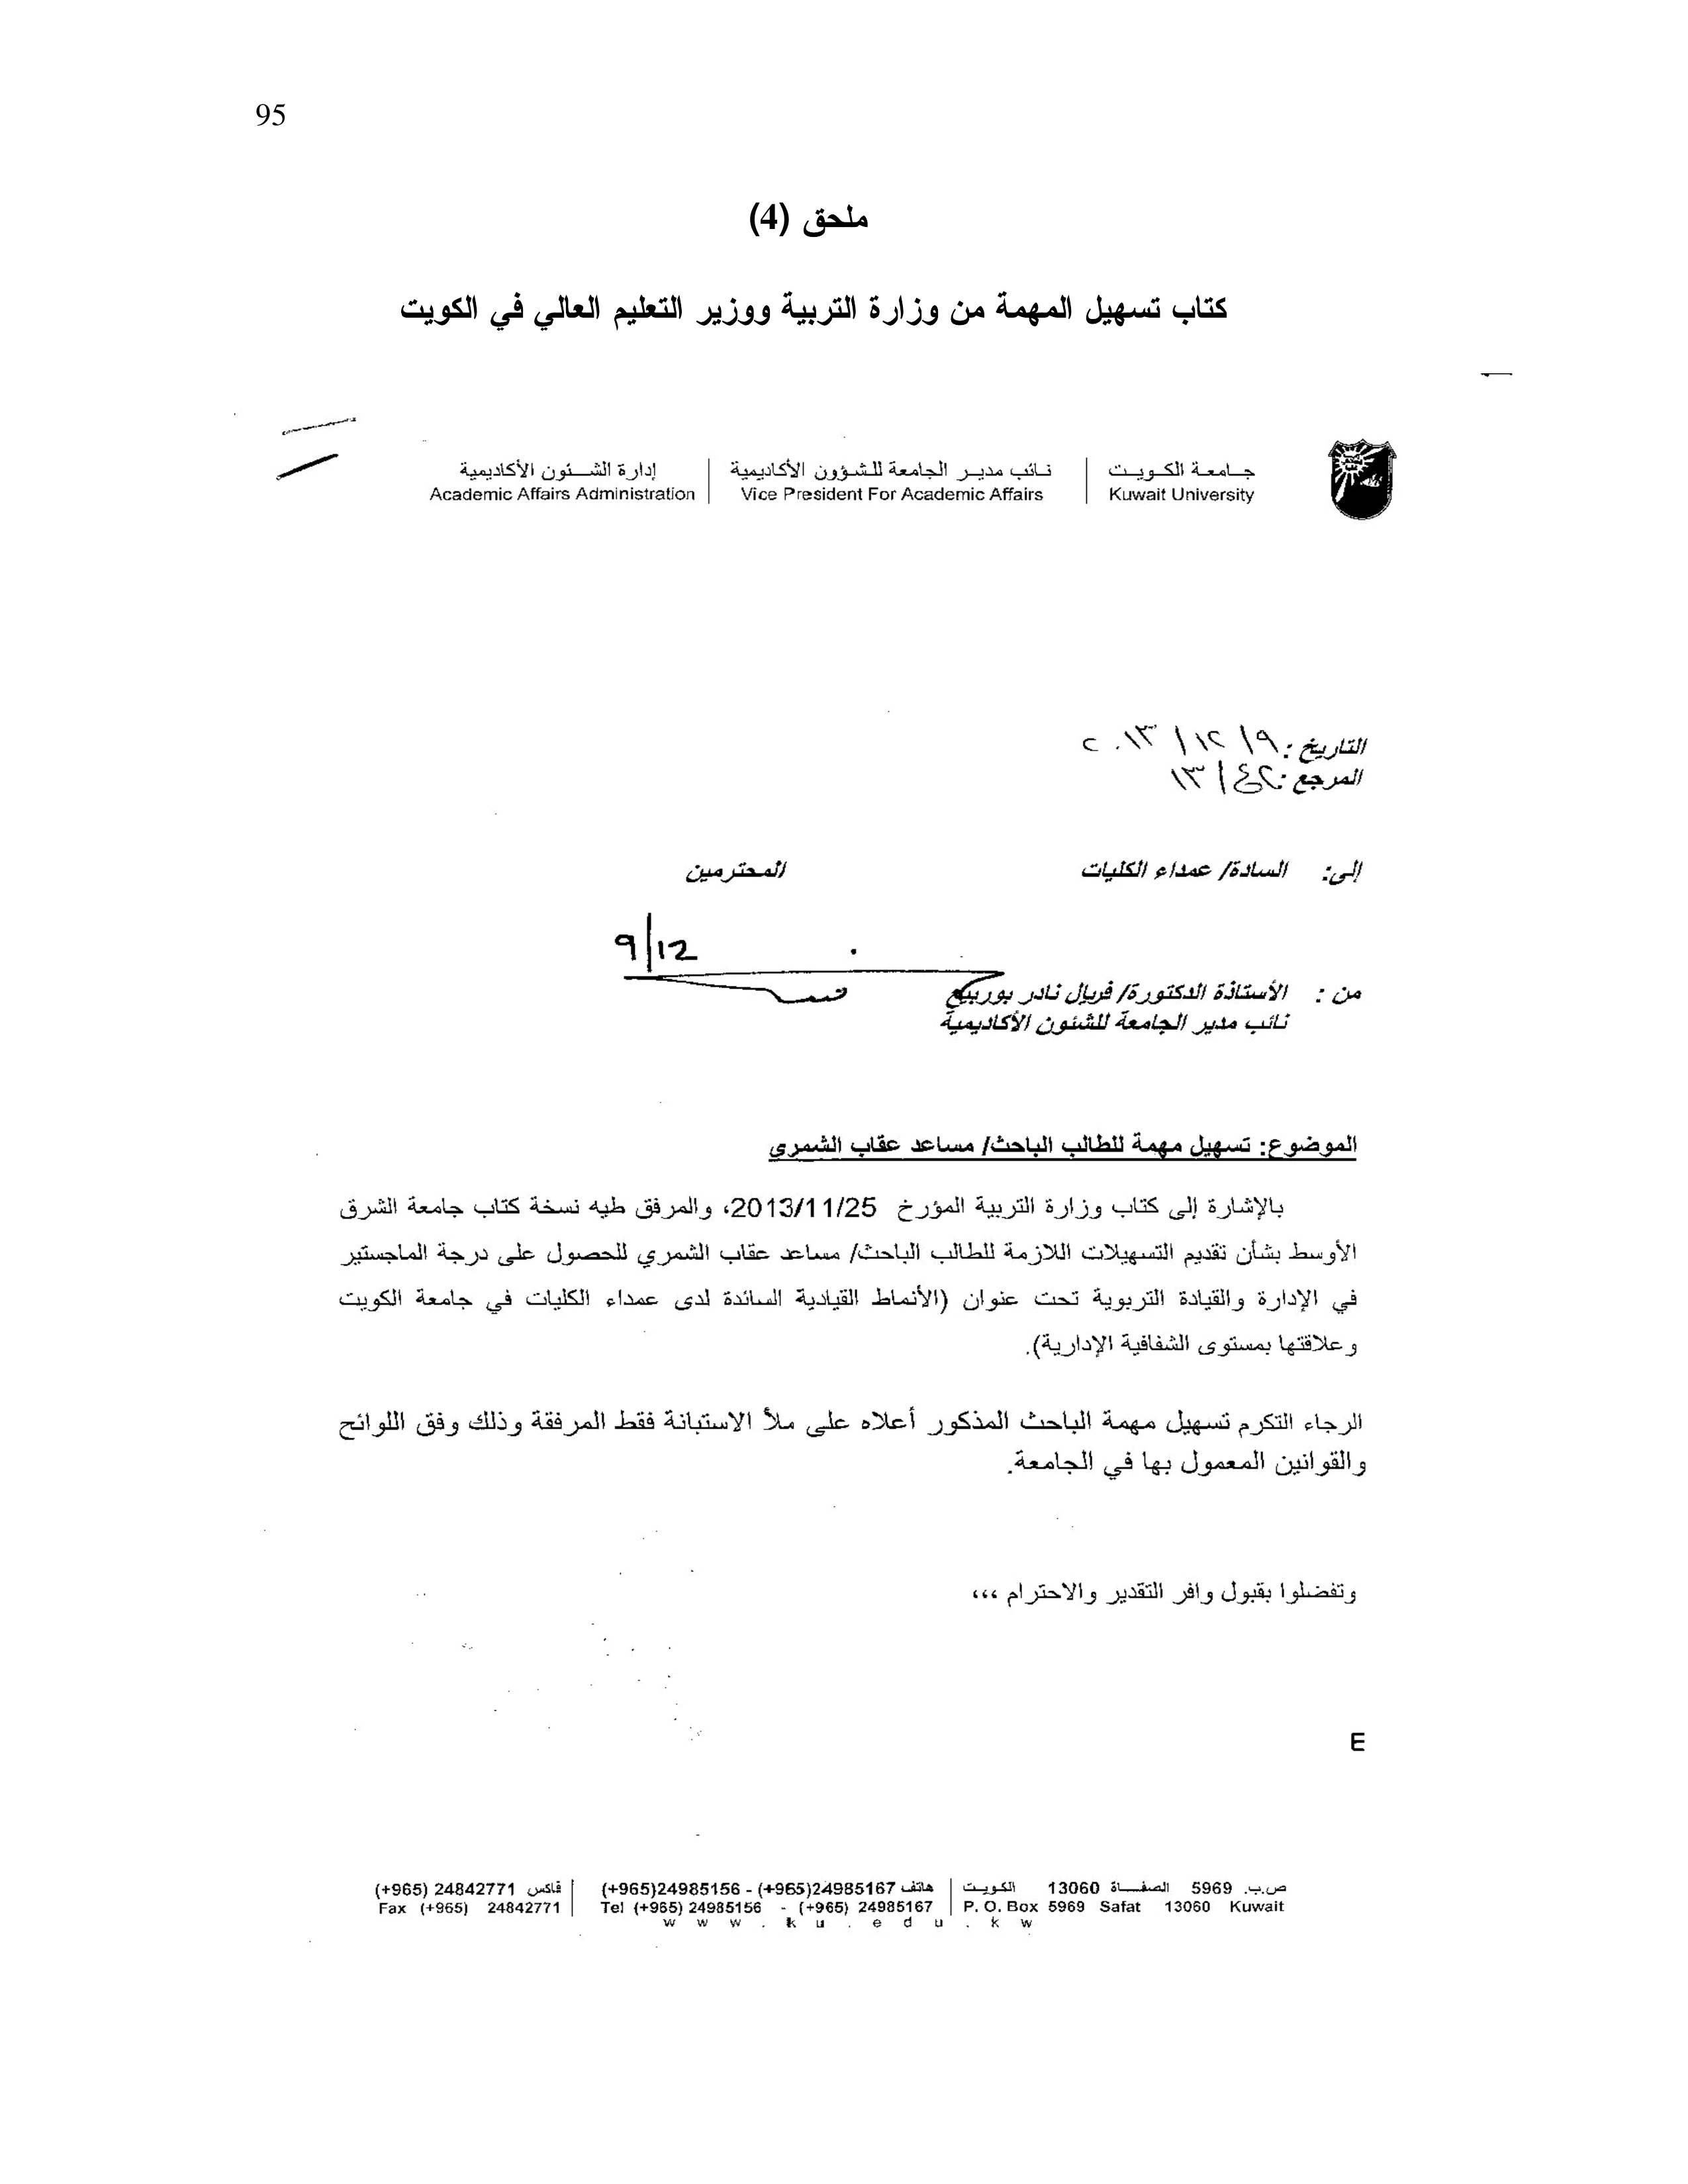 95
ملحق (4)
كتاب تسهيل المهمة من وزارة التربية ووزير التعليم العالي في الكويت
جامعة الكويت
Kuwait University
نائب مدير الجامعة للشؤون الأكاديمية
Vice President For Academic Affairs
إدارة الشئون الأكاديمية
Academic Affairs Administration
التاريخ: ٩/ ١٢/ ٢٠١٣
المرجع: ٤٢/ ١٣
إلى: السادة/ عمداء الكليات المحترمين
9/12
من : الأستاذة الدكتورة/ فريال نادر بوربيع
نائب مدير الجامعة للشئون الأكاديمية
الموضوع: تسهيل مهمة للطالب الباحث/ مساعد عقاب الشمري
بالإشارة إلى كتاب وزارة التربية المؤرخ 2013/11/25، والمرفق طيه نسخة كتاب جامعة الشرق
الأوسط بشأن تقديم التسهيلات اللازمة للطالب الباحث/ مساعد عقاب الشمري للحصول على درجة الماجستير
في الإدارة والقيادة التربوية تحت عنوان (الأنماط القيادية السائدة لدى عمداء الكليات في جامعة الكويت
وعلاقتها بمستوى الشفافية الإدارية).
الرجاء التكرم تسهيل مهمة الباحث المذكور أعلاه على ملأ الاستبانة فقط المرفقة وذلك وفق اللوائح
والقوانين المعمول بها في الجامعة.
وتفضلوا بقبول وافر التقدير والاحترام ،،،
E
ص.ب. 5969 الصفاة 13060 الكويت
هاتف 24985167(965+) - 24985156(965+)
فاكس 24842771 (965+)
P. O. Box 5969 Safat 13060 Kuwait
Tel (+965) 24985156 - (+965) 24985167
Fax (+965) 24842771
www.ku.edu.kw